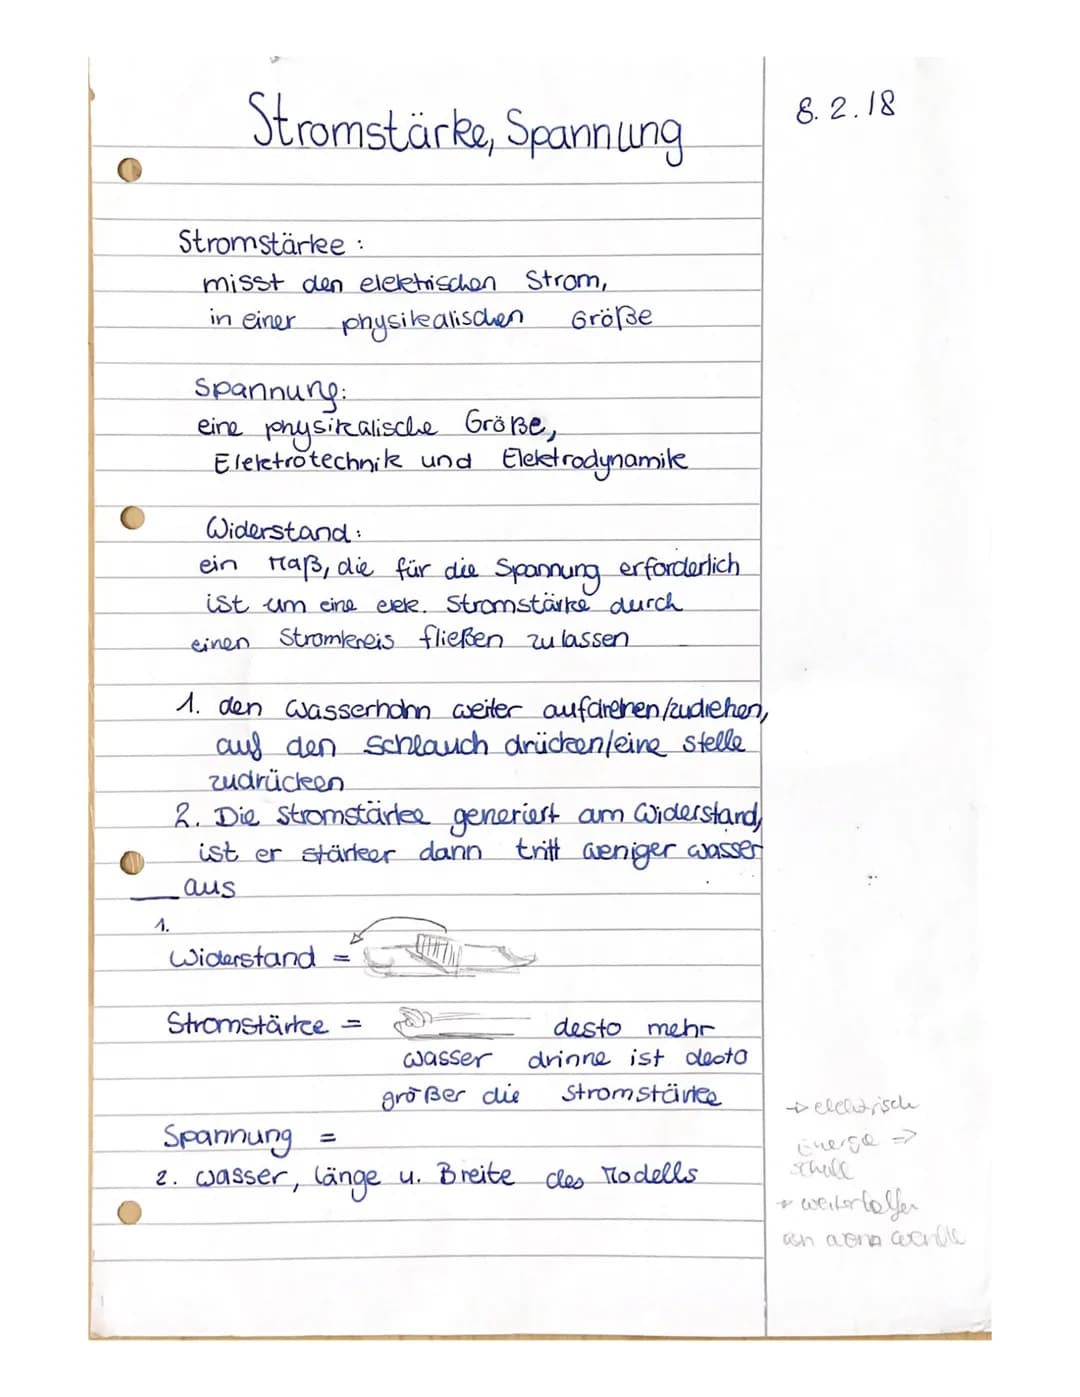 Stromstärke, Spannung
8.2.18
Stromstärke:
misst den elektrischen Strom,
in einer physikalischen Größe
Spannung:
eine physikalische Größe,
Elektrotechnik und Elektrodynamik
Widerstand:
ein Maß, die für die Spannung erforderlich
ist um eine elek. Stromstärke durch
einen Stromkreis fließen zu lassen
1. den Wasserhahn weiter aufdrehen/zudrehen,
auf den Schlauch drücken/eine stelle
zudrücken
2. Die Stromstärke generiert am Widerstand,
ist er stärker dann tritt weniger wasser
aus
1.
Widerstand =
Stromstärke = desto mehr
wasser drinne ist desto
größer die Stromstärke
Spannung =
2. wasser, länge u. Breite des Modells
→ elektrische
Energie ⇒